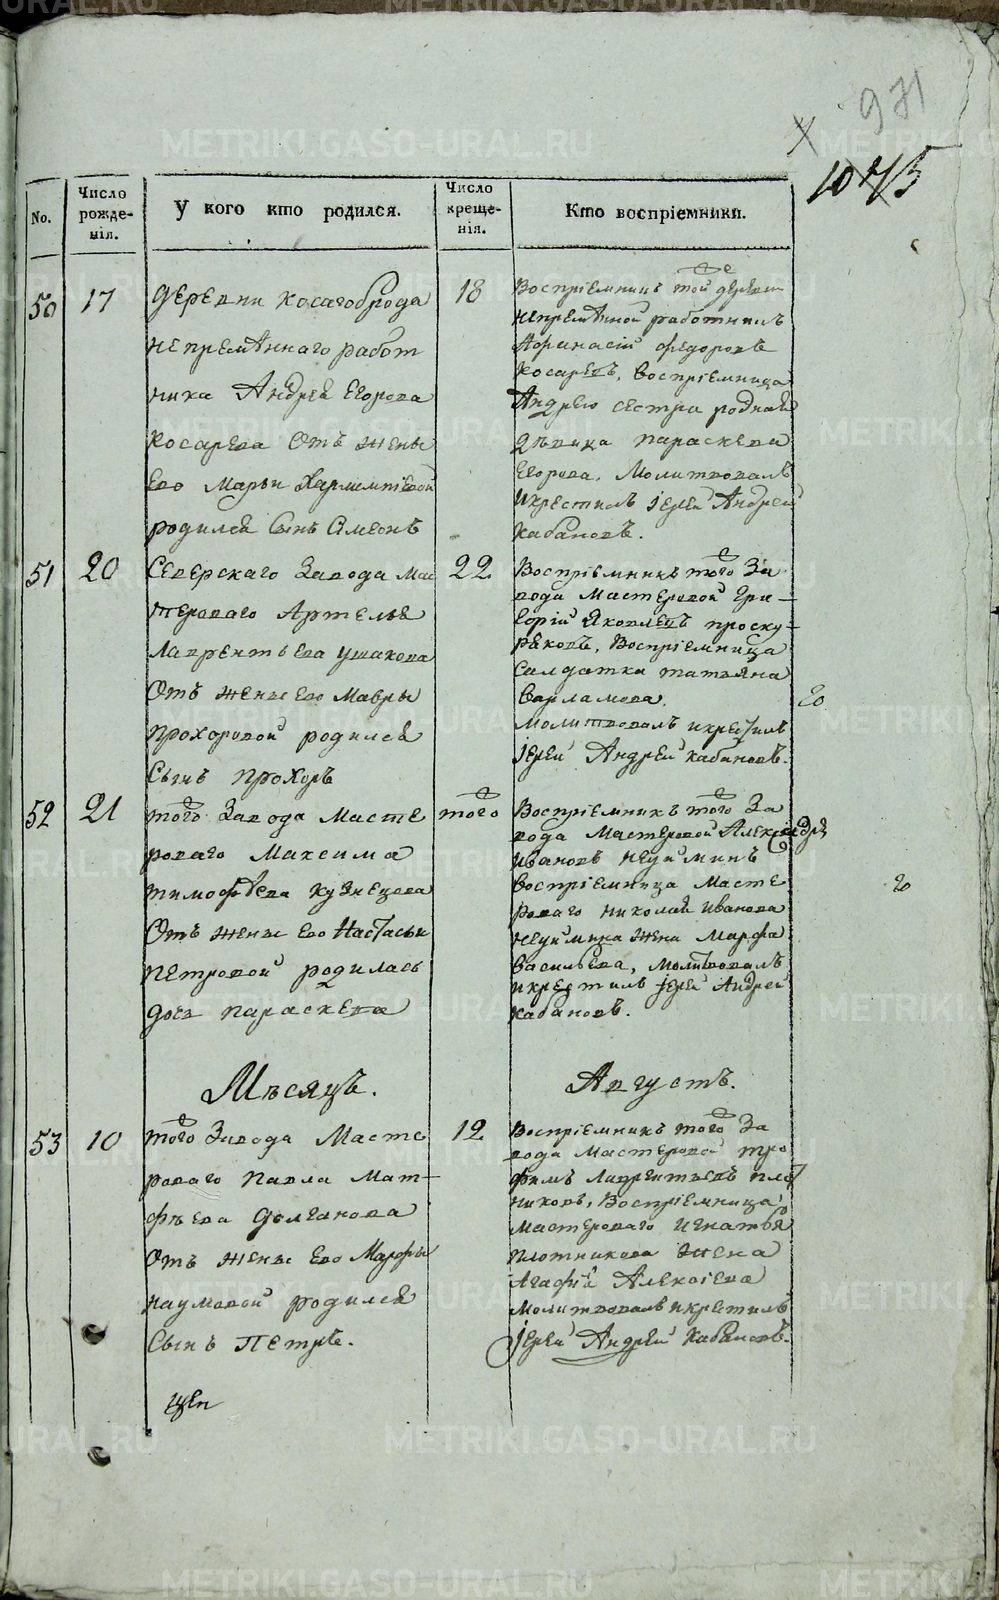 971
1075
No.
Число рожде-
нія.
У кого кто родился.
Число креще-
нія.
Кто воспріемники.
50
17
деревни Косагоброда
непремѣннаго работ
ника Андрея Егорова
Косарева Отъ жены
Его Марьи Харлампіевой
родился Сынъ Сімеонъ
18
Воспріемникъ той деревни
непремѣнной работникъ
Афанасій Федоровъ
Косаревъ, воспріемница
Андрею сестра родная
дѣвика Параскева
Егорова. Молитвовалъ
и крестилъ іерей Андрей
Кабановъ.
51
20
Северскаго Завода Мас
тероваго Артемья
Лаврентьева Ушакова
Отъ жены Его Мавры
Прохоровой родился
Сынъ Прохоръ
22
Воспріемникъ того За
вода Мастеровой Гри-
горій Яковлевъ Проску-
ряковъ, Воспріемница
Салдатка Татьяна
Варламова.
Молитвовалъ и крестилъ
іерей Андрей Кабановъ.
52
21
того Завода Масте
роваго Максима
Тимофѣева Кузнецова
Отъ жены Его Настасьи
Петровой родилась
дочь Параскева
того
Воспріемникъ того За
вода Мастеровой Александръ
Ивановъ Неуйминъ
Воспріемница Масте
роваго Николая Иванова
Неуймина жена Марфа
Васильева, молитвовалъ
и крестилъ іерей Андрей
Кабановъ.
Мѣсяцъ.
Августъ.
53
10
того Завода Масте
роваго Павла Мат-
фѣева Долганова
Отъ жены Его Марфы
Наумовой родился
Сынъ Петръ.
12
Воспріемникъ того За
вода Мастеровой Тро
фимъ Лаврентьевъ Плот
никовъ, Воспріемница
Мастероваго Игнатья
Плотникова жена
Агафія Алексіева
Молитвовалъ и крестилъ
іерей Андрей Кабановъ.
METRIKI.GASO-URAL.RU